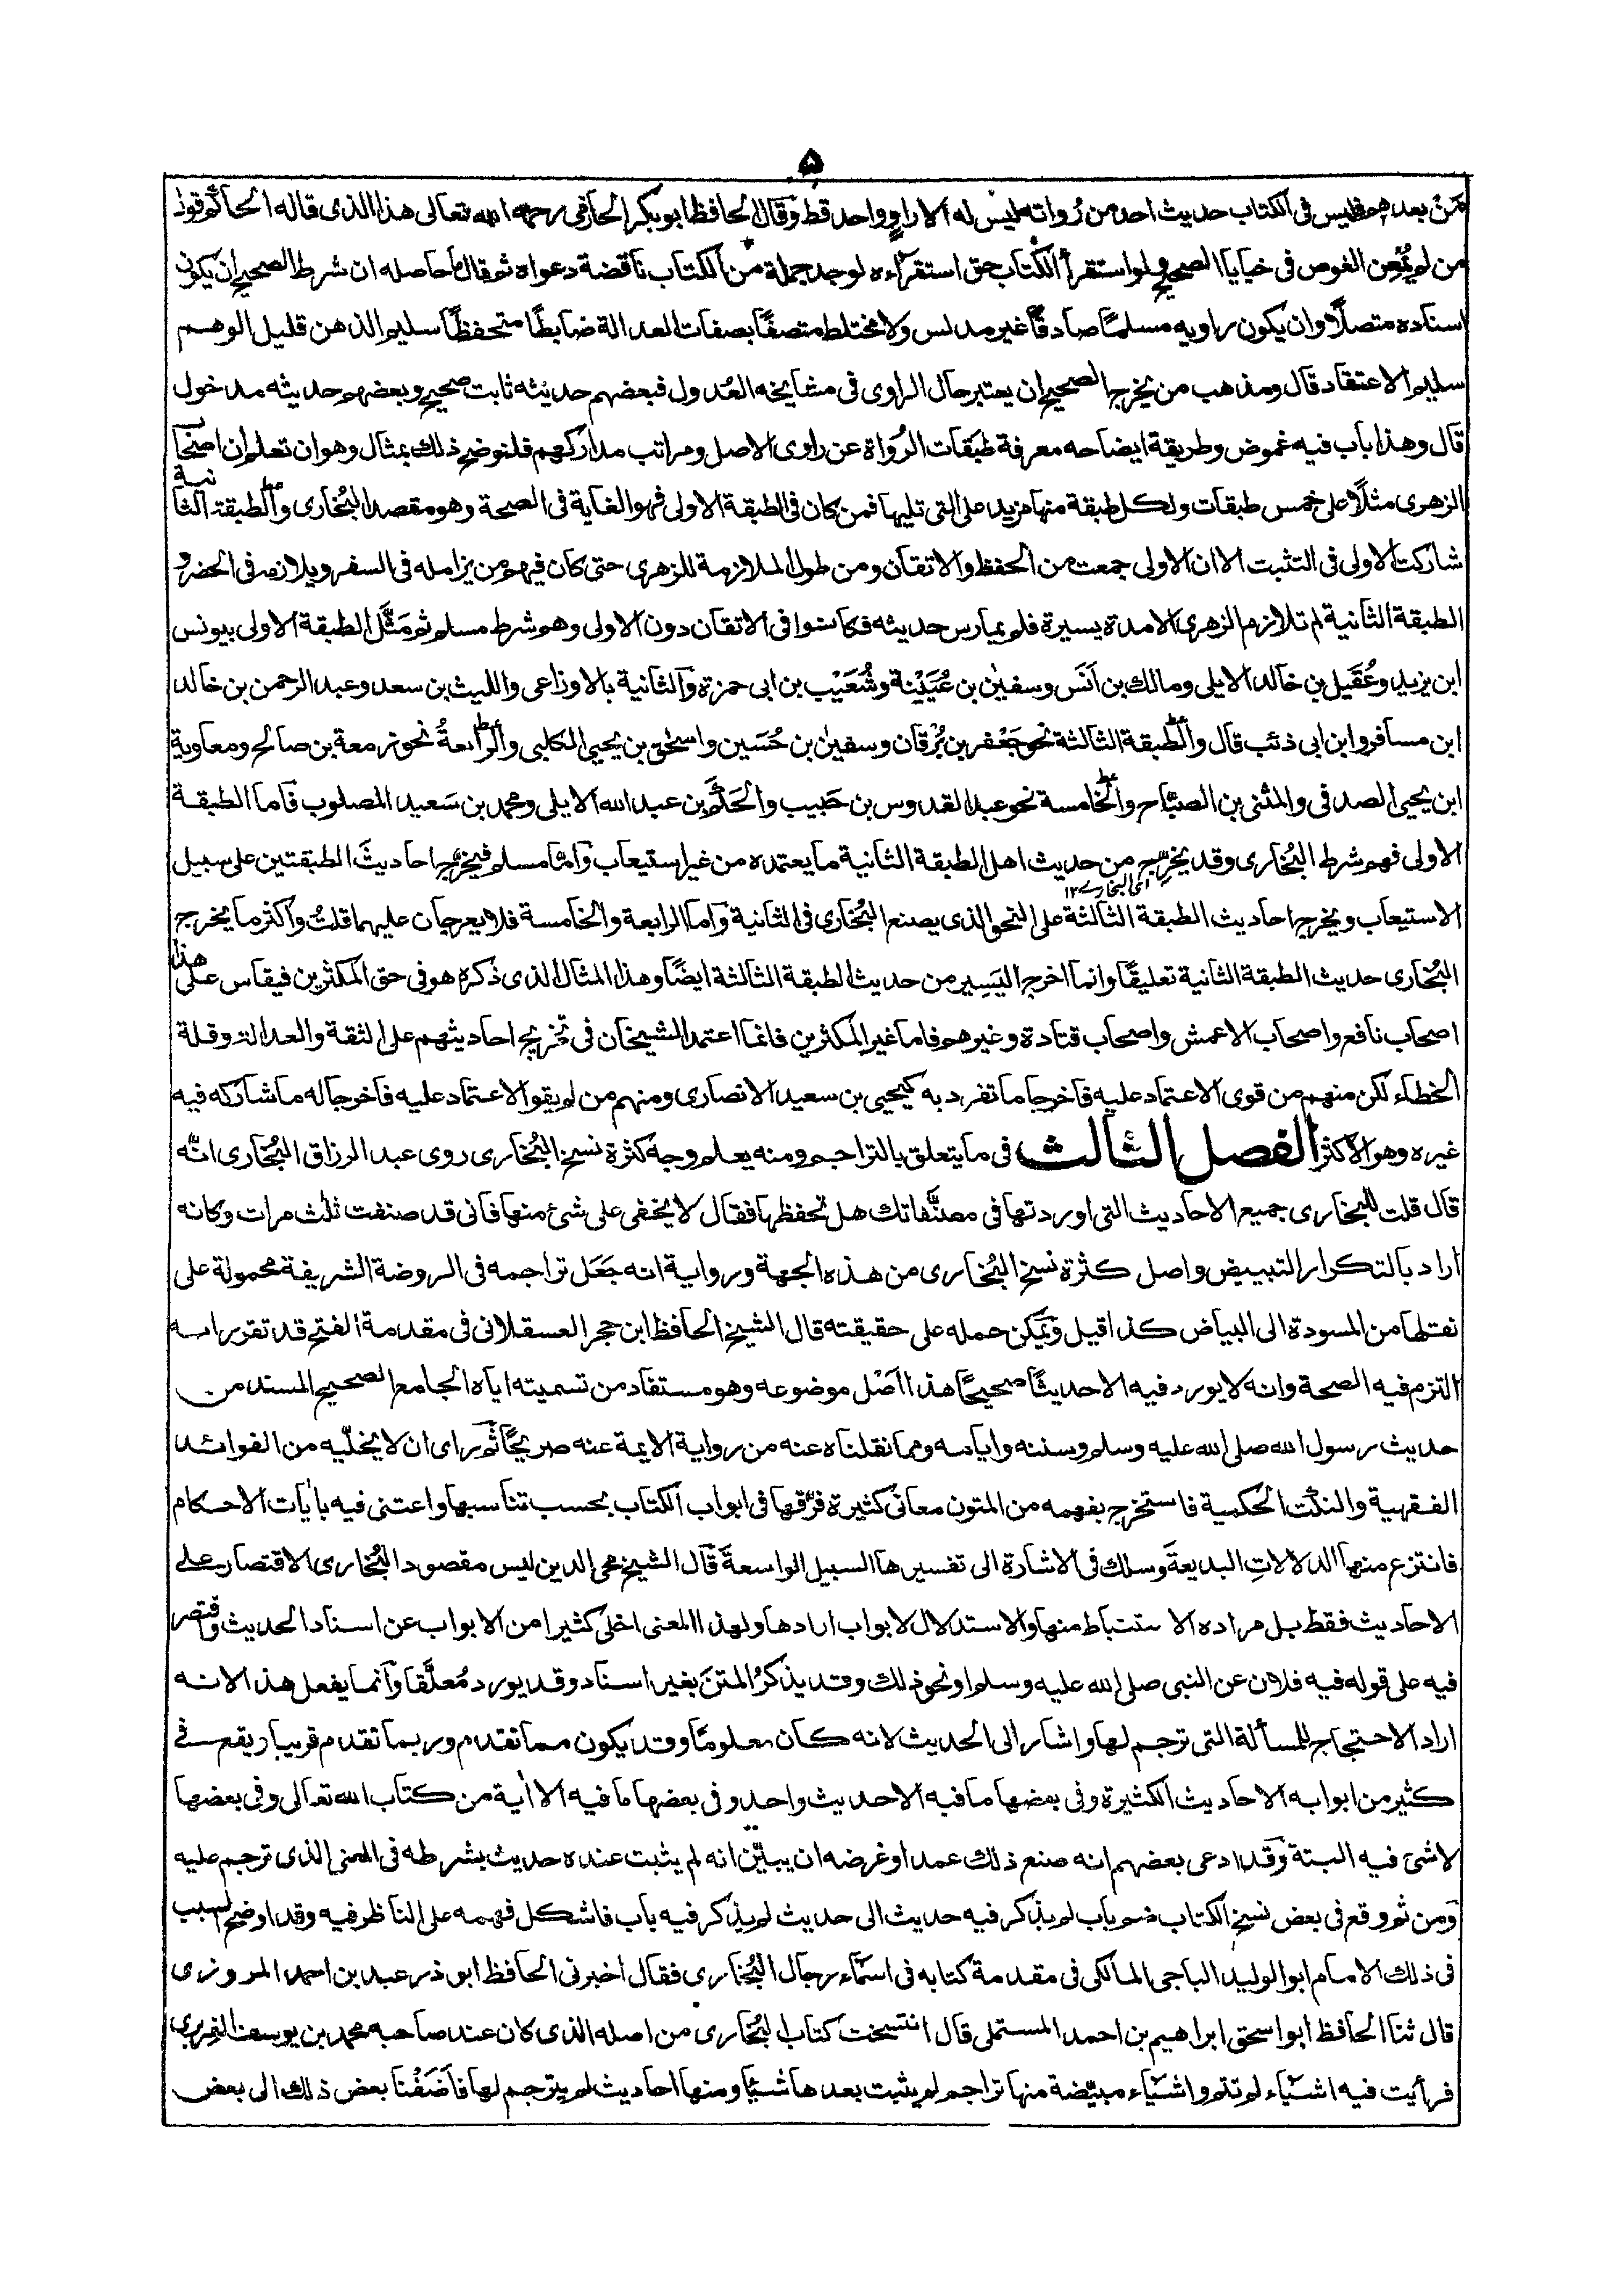 ۵
فمن بعدهم فليس فى الكتاب حديث احد من رُواته ليس له الا راوٍ واحد قط وقال الحافظ ابوبكر الحازمى رحمه الله تعالى هذا الذى قاله الحاكم قول
من لم يُمعِن الغوص فى خبايا الصحيح ولو استقرأ الكتاب حق استقراءه لوجد جملة من الكتاب ناقضة دعواه ثم قال ما حاصله ان شرط الصحيح ان يكون
اسناده متصلًا وان يكون راويه مسلمًا صادقًا غير مدلس ولا مختلط متصفًا بصفات العدالة ضابطًا متحفظًا سليم الذهن قليل الوهم
سليم الاعتقاد قال ومذهب من يخرج الصحيح ان يعتبر حال الراوى فى مشايخه العُدول فبعضهم حديثه ثابت صحيح وبعضهم حديثه مدخول
قال وهذا باب فيه غموض وطريقة ايضاحه معرفة طبقات الرُواة عن راوى الاصل ومراتب مداركهم فلنوضح ذلك بمثال وهو ان تعلم ان اصحاب
الزهرى مثلًا على خمس طبقات ولكل طبقة منها مزيد على التى تليها فمن كان فى الطبقة الاولى فهو الغاية فى الصحة وهو مقصد البُخارى والطبقة الثانية
شاركت الاولى فى التثبت الا ان الاولى جمعت من الحفظ والاتقان ومن طول الملازمة للزهرى حتى كان فيهم من يزامله فى السفر ويلازمه فى الحضر و
الطبقة الثانية لم تلازم الزهرى الا مدة يسيرة فلم يمارس حديثه فكانوا فى الاتقان دون الاولى وهو شرط مسلم ثم مَثَّل الطبقة الاولى بيونس
ابن يزيد وعُقَيل بن خالد الايلى ومالك بن اَنَس وسفين بن عُيَيْنة وشُعَيْب بن ابى حمزة والثانية بالاوزاعى والليث بن سعد وعبد الرحمن بن خالد
ابن مسافر وابن ابى ذئب قال والطبقة الثالثة نحو جَعْفر بن بُرْقان وسفين بن حُسَين واسحٰق بن يحيى الكلبى والرابعةُ نحو زمعة بن صالح ومعاوية
ابن يحيى الصدفى والمثنى بن الصبّاح والخامسة نحو عبد القدوس بن حَبيب والحَكَم بن عبد الله الايلى ومحمد بن سَعيد المصلوب فاما الطبقة
الاولى فهم شرط البُخارى وقد يخرّج من حديث اهل الطبقة الثانية ما يعتمده من غير استيعاب وامّا مسلم فيخرّج احاديثَ الطبقتين على سبيل
اى البخارى ١٢
الاستيعاب ويخرج احاديث الطبقة الثالثة على النحو الذى يصنع البُخارى فى الثانية واما الرابعة والخامسة فلا يعرجان عليهما قلتُ واكثر ما يخرج
البُخارى حديث الطبقة الثانية تعليقًا وانما اخرج اليَسِير من حديث الطبقة الثالثة ايضًا وهذا المثال الذى ذكره هو فى حق المكثرين فيقاس على هذا
اصحاب نافع واصحاب الاعمش واصحاب قتادة وغيرهم فاما غير المكثرين فانما اعتمد الشيخان فى تخريج احاديثهم على الثقة والعدالة وقلة
الخطاء لكن منهم من قوى الاعتماد عليه فاخرجا ما تفرد به كيحيى بن سعيد الانصارى ومنهم من لم يقو الاعتماد عليه فاخرجا له ما شاركه فيه
غيره وهو الاكثر الفصل الثالث فى ما يتعلق بالتراجم ومنه يعلم وجه كثرة نسخ البُخارى روى عبد الرزاق البُخارى انّه
قال قلت للبخارى جميع الاحاديث التى اوردتها فى مصنّفاتك هل تحفظها فقال لا يخفى على شئ منها فانى قد صنفت ثلٰث مرات وكانه
اراد بالتكرار التبييض واصل كثرة نسخ البُخارى من هذه الجهة ورواية انه جَعَل تراجمه فى الروضة الشريفة محمولة على
نقلها من المسودة الى البياض كذا قيل ويمكن حمله على حقيقته قال الشيخ الحافظ ابن حجر العسقلانى فى مقدمة الفتح قد تقرر انه
التزم فيه الصحة وانه لا يورد فيه الا حديثًا صحيحًا هذا اَصْل موضوعه وهو مستفاد من تسميته اياه الجامع الصحيح المسند من
حديث رسول الله صلى الله عليه وسلم وسننه وايامه ومما نقلناه عنه من رواية الايمة عنه صريحًا ثم راى ان لا يخلّيه من الفوائد
الفقهية والنكت الحكمية فاستخرج بفهمه من المتون معانى كثيرة فرّقها فى ابواب الكتاب بحسب تناسبها واعتنى فيه باٰيات الاحكام
فانتزع منها الدلالاتِ البديعةَ وسلك فى الاشارة الى تفسيرها السبيل الواسعةَ قال الشيخ محى الدين ليس مقصود البُخارى الاقتصار على
الاحاديث فقط بل مراده الاستنباط منها والاستدلال لابواب ارادها ولهذا المعنى اخلى كثيرا من الابواب عن اسناد الحديث واقتصر
فيه على قوله فيه فلان عن النبى صلى الله عليه وسلم او نحو ذلك وقد يذكرُ المتنَ بغير اسناد وقد يورد مُعلَّقا وانما يفعل هذا لانه
اراد الاحتجاج للمسألة التى ترجم لها واشار الى الحديث لانه كان معلومًا وقد يكون مما تقدم وربما تقدم قريبا ويقع فى
كثير من ابوابه الاحاديث الكثيرة وفى بعضها ما فيه الا حديث واحد وفى بعضها ما فيه الا اٰية من كتاب الله تعالى وفى بعضها
لا شئ فيه البتة وقد ادعى بعضهم انه صنع ذلك عمدا وغرضه ان يبيّن انه لم يثبت عنده حديث بشرطه فى المعنى الذى ترجم عليه
ومن ثم وقع فى بعض نسخ الكتاب ضم باب لم يذكر فيه حديث الى حديث لم يذكر فيه باب فاشكل فهمه على الناظر فيه وقد اوضح السبب
فى ذلك الامام ابو الوليد الباجى المالكى فى مقدمة كتابه فى اسماء رجال البُخارى فقال اخبرنى الحافظ ابو ذر عبد بن احمد المروزى
قال ثنا الحافظ ابو اسحق ابراهيم بن احمد المستملى قال انتسخت كتاب البُخارى من اصله الذى كان عند صاحبه محمد بن يوسف الفربرى
فرأيت فيه اشياء لم تتم واشياء مبيّضة منها تراجم لم يثبت بعدها شيئا ومنها احاديث لم يترجم لها فاَضَفْنا بعض ذلك الى بعض